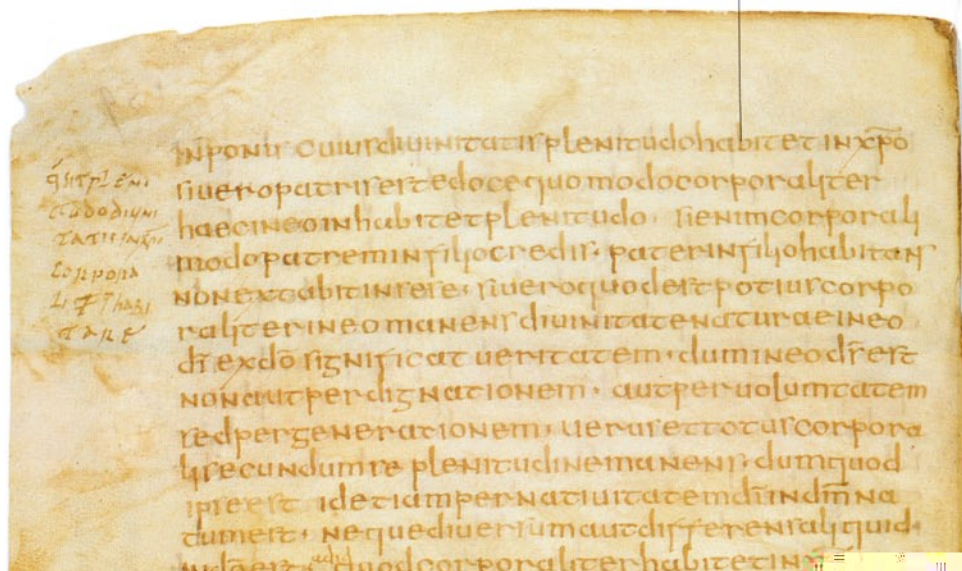 inponis cuiusdiuinitatisplenitudohabitetinxpo
siueropatrisestedocequomodocorporaliter
haecineoinhabitetplenitudo · sienimcorporali
modopatreminfiliocredis · paterinfiliohabitans
nonextabitinsese · siueroquodestpotiuscorpo
raliterineomanensdiuinitatenaturaeineo
di exdo significat ueritatem · dumineodsest
nonautperdignationem · autperuoluntatem
sedpergenerationem uerusettotuscorpora
lisecundumse plenitudinemanens · dumquod
ipseest idetiampernatiuitatemdiindmna
tumest · nequediuersumautdifferensaliquid ·
quodcorporaliterhabitetin
qsitpleni
tudodiuini
tatisinxpi
corpora
lit habi
tare